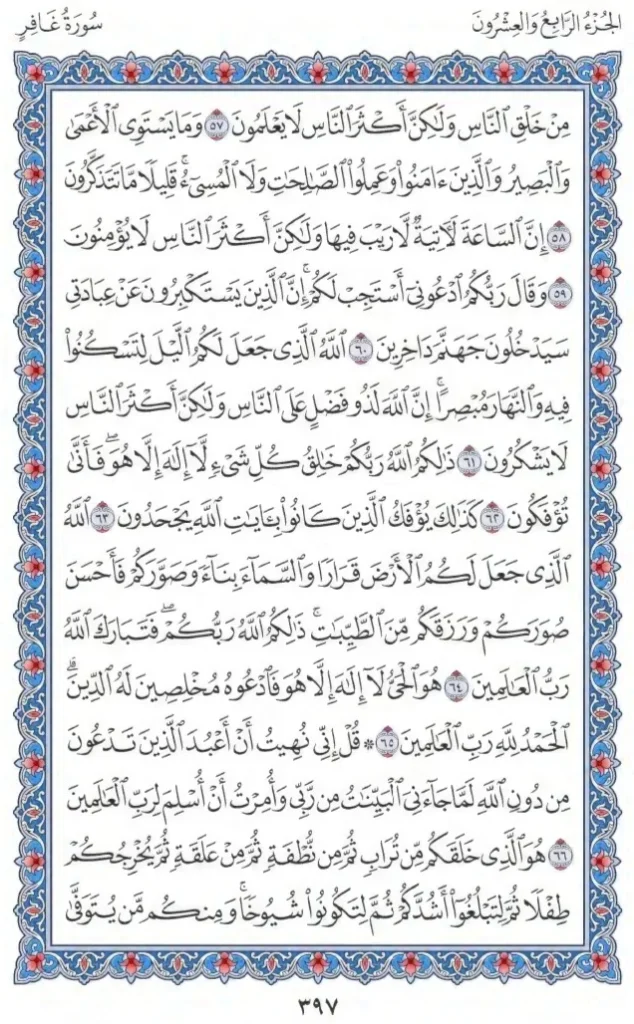 الجُزْءُ الرَّابِعُ وَالعِشْرُونَ
سُورَةُ غَافِرٍ
مِنْ خَلْقِ ٱلنَّاسِ وَلَٰكِنَّ أَكْثَرَ ٱلنَّاسِ لَا يَعْلَمُونَ ٥٧ وَمَا يَسْتَوِى ٱلْأَعْمَىٰ
وَٱلْبَصِيرُ وَٱلَّذِينَ ءَامَنُوا۟ وَعَمِلُوا۟ ٱلصَّٰلِحَٰتِ وَلَا ٱلْمُسِىٓءُ ۚ قَلِيلًا مَّا تَتَذَكَّرُونَ
٥٨ إِنَّ ٱلسَّاعَةَ لَءَاتِيَةٌ لَّا رَيْبَ فِيهَا وَلَٰكِنَّ أَكْثَرَ ٱلنَّاسِ لَا يُؤْمِنُونَ
٥٩ وَقَالَ رَبُّكُمُ ٱدْعُونِىٓ أَسْتَجِبْ لَكُمْ ۚ إِنَّ ٱلَّذِينَ يَسْتَكْبِرُونَ عَنْ عِبَادَتِى
سَيَدْخُلُونَ جَهَنَّمَ دَاخِرِينَ ٦٠ ٱللَّهُ ٱلَّذِى جَعَلَ لَكُمُ ٱلَّيْلَ لِتَسْكُنُوا۟
فِيهِ وَٱلنَّهَارَ مُبْصِرًا ۚ إِنَّ ٱللَّهَ لَذُو فَضْلٍ عَلَى ٱلنَّاسِ وَلَٰكِنَّ أَكْثَرَ ٱلنَّاسِ
لَا يَشْكُرُونَ ٦١ ذَٰلِكُمُ ٱللَّهُ رَبُّكُمْ خَٰلِقُ كُلِّ شَىْءٍ لَّآ إِلَٰهَ إِلَّا هُوَ ۖ فَأَنَّىٰ
تُؤْفَكُونَ ٦٢ كَذَٰلِكَ يُؤْفَكُ ٱلَّذِينَ كَانُوا۟ بِـَٔايَٰتِ ٱللَّهِ يَجْحَدُونَ ٦٣ ٱللَّهُ
ٱلَّذِى جَعَلَ لَكُمُ ٱلْأَرْضَ قَرَارًا وَٱلسَّمَآءَ بِنَآءً وَصَوَّرَكُمْ فَأَحْسَنَ
صُوَرَكُمْ وَرَزَقَكُم مِّنَ ٱلطَّيِّبَٰتِ ۚ ذَٰلِكُمُ ٱللَّهُ رَبُّكُمْ ۖ فَتَبَارَكَ ٱللَّهُ
رَبُّ ٱلْعَٰلَمِينَ ٦٤ هُوَ ٱلْحَىُّ لَآ إِلَٰهَ إِلَّا هُوَ فَٱدْعُوهُ مُخْلِصِينَ لَهُ ٱلدِّينَ ۗ
ٱلْحَمْدُ لِلَّهِ رَبِّ ٱلْعَٰلَمِينَ ٦٥ ۞ قُلْ إِنِّى نُهِيتُ أَنْ أَعْبُدَ ٱلَّذِينَ تَدْعُونَ
مِن دُونِ ٱللَّهِ لَمَّا جَآءَنِىَ ٱلْبَيِّنَٰتُ مِن رَّبِّى وَأُمِرْتُ أَنْ أُسْلِمَ لِرَبِّ ٱلْعَٰلَمِينَ
٦٦ هُوَ ٱلَّذِى خَلَقَكُم مِّن تُرَابٍ ثُمَّ مِن نُّطْفَةٍ ثُمَّ مِنْ عَلَقَةٍ ثُمَّ يُخْرِجُكُمْ
طِفْلًا ثُمَّ لِتَبْلُغُوٓا۟ أَشُدَّكُمْ ثُمَّ لِتَكُونُوا۟ شُيُوخًا ۚ وَمِنكُم مَّن يُتَوَفَّىٰ
٣٩٧